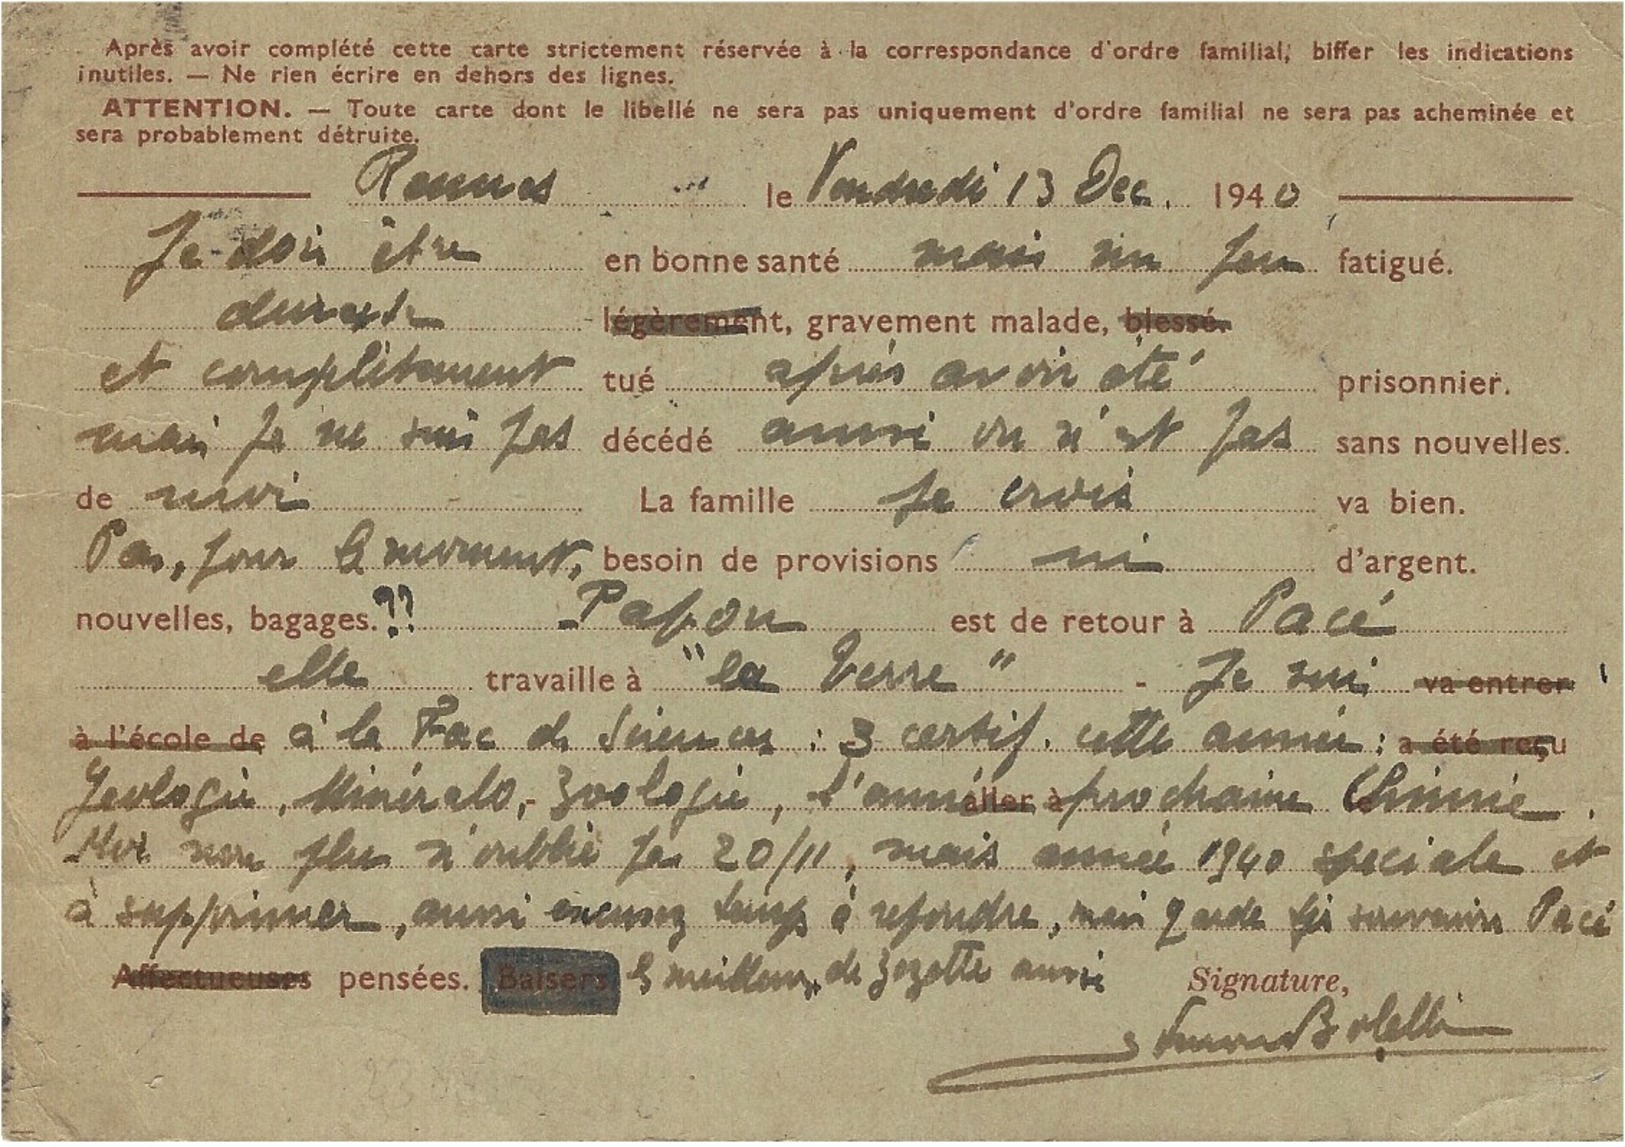 Après avoir complété cette carte strictement réservée à la correspondance d'ordre familial, biffer les indications
inutiles. — Ne rien écrire en dehors des lignes.
ATTENTION. — Toute carte dont le libellé ne sera pas uniquement d'ordre familial ne sera pas acheminée et
sera probablement détruite.
Rennes le Vendredi 13 Dec. 1940
Je dois être en bonne santé mais un peu fatigué.
légèrement, gravement malade, blessé.
et complètement tué après avoir été prisonnier.
mais je ne suis pas décédé aussi on n'est pas sans nouvelles.
de moi La famille je crois va bien.
Pas, pour le moment, besoin de provisions ni d'argent.
nouvelles, bagages.?? Papou est de retour à Pacé
elle travaille à "la Terre" - Je suis va entrer
à l'école de à la Fac de Sciences : 3 certif. cette année : a été reçu
Géologie, Minéralo,- Zoologie, l'année aller à prochaine Chimie.
Moi non plus n'oublie pas 20/11, mais année 1940 speciale et
à supprimer, aussi excusez temps à repondre, mais garde souvenirs Pacé
Affectueuses pensées. Baisers les meilleurs, de Zozotte aussi Signature,